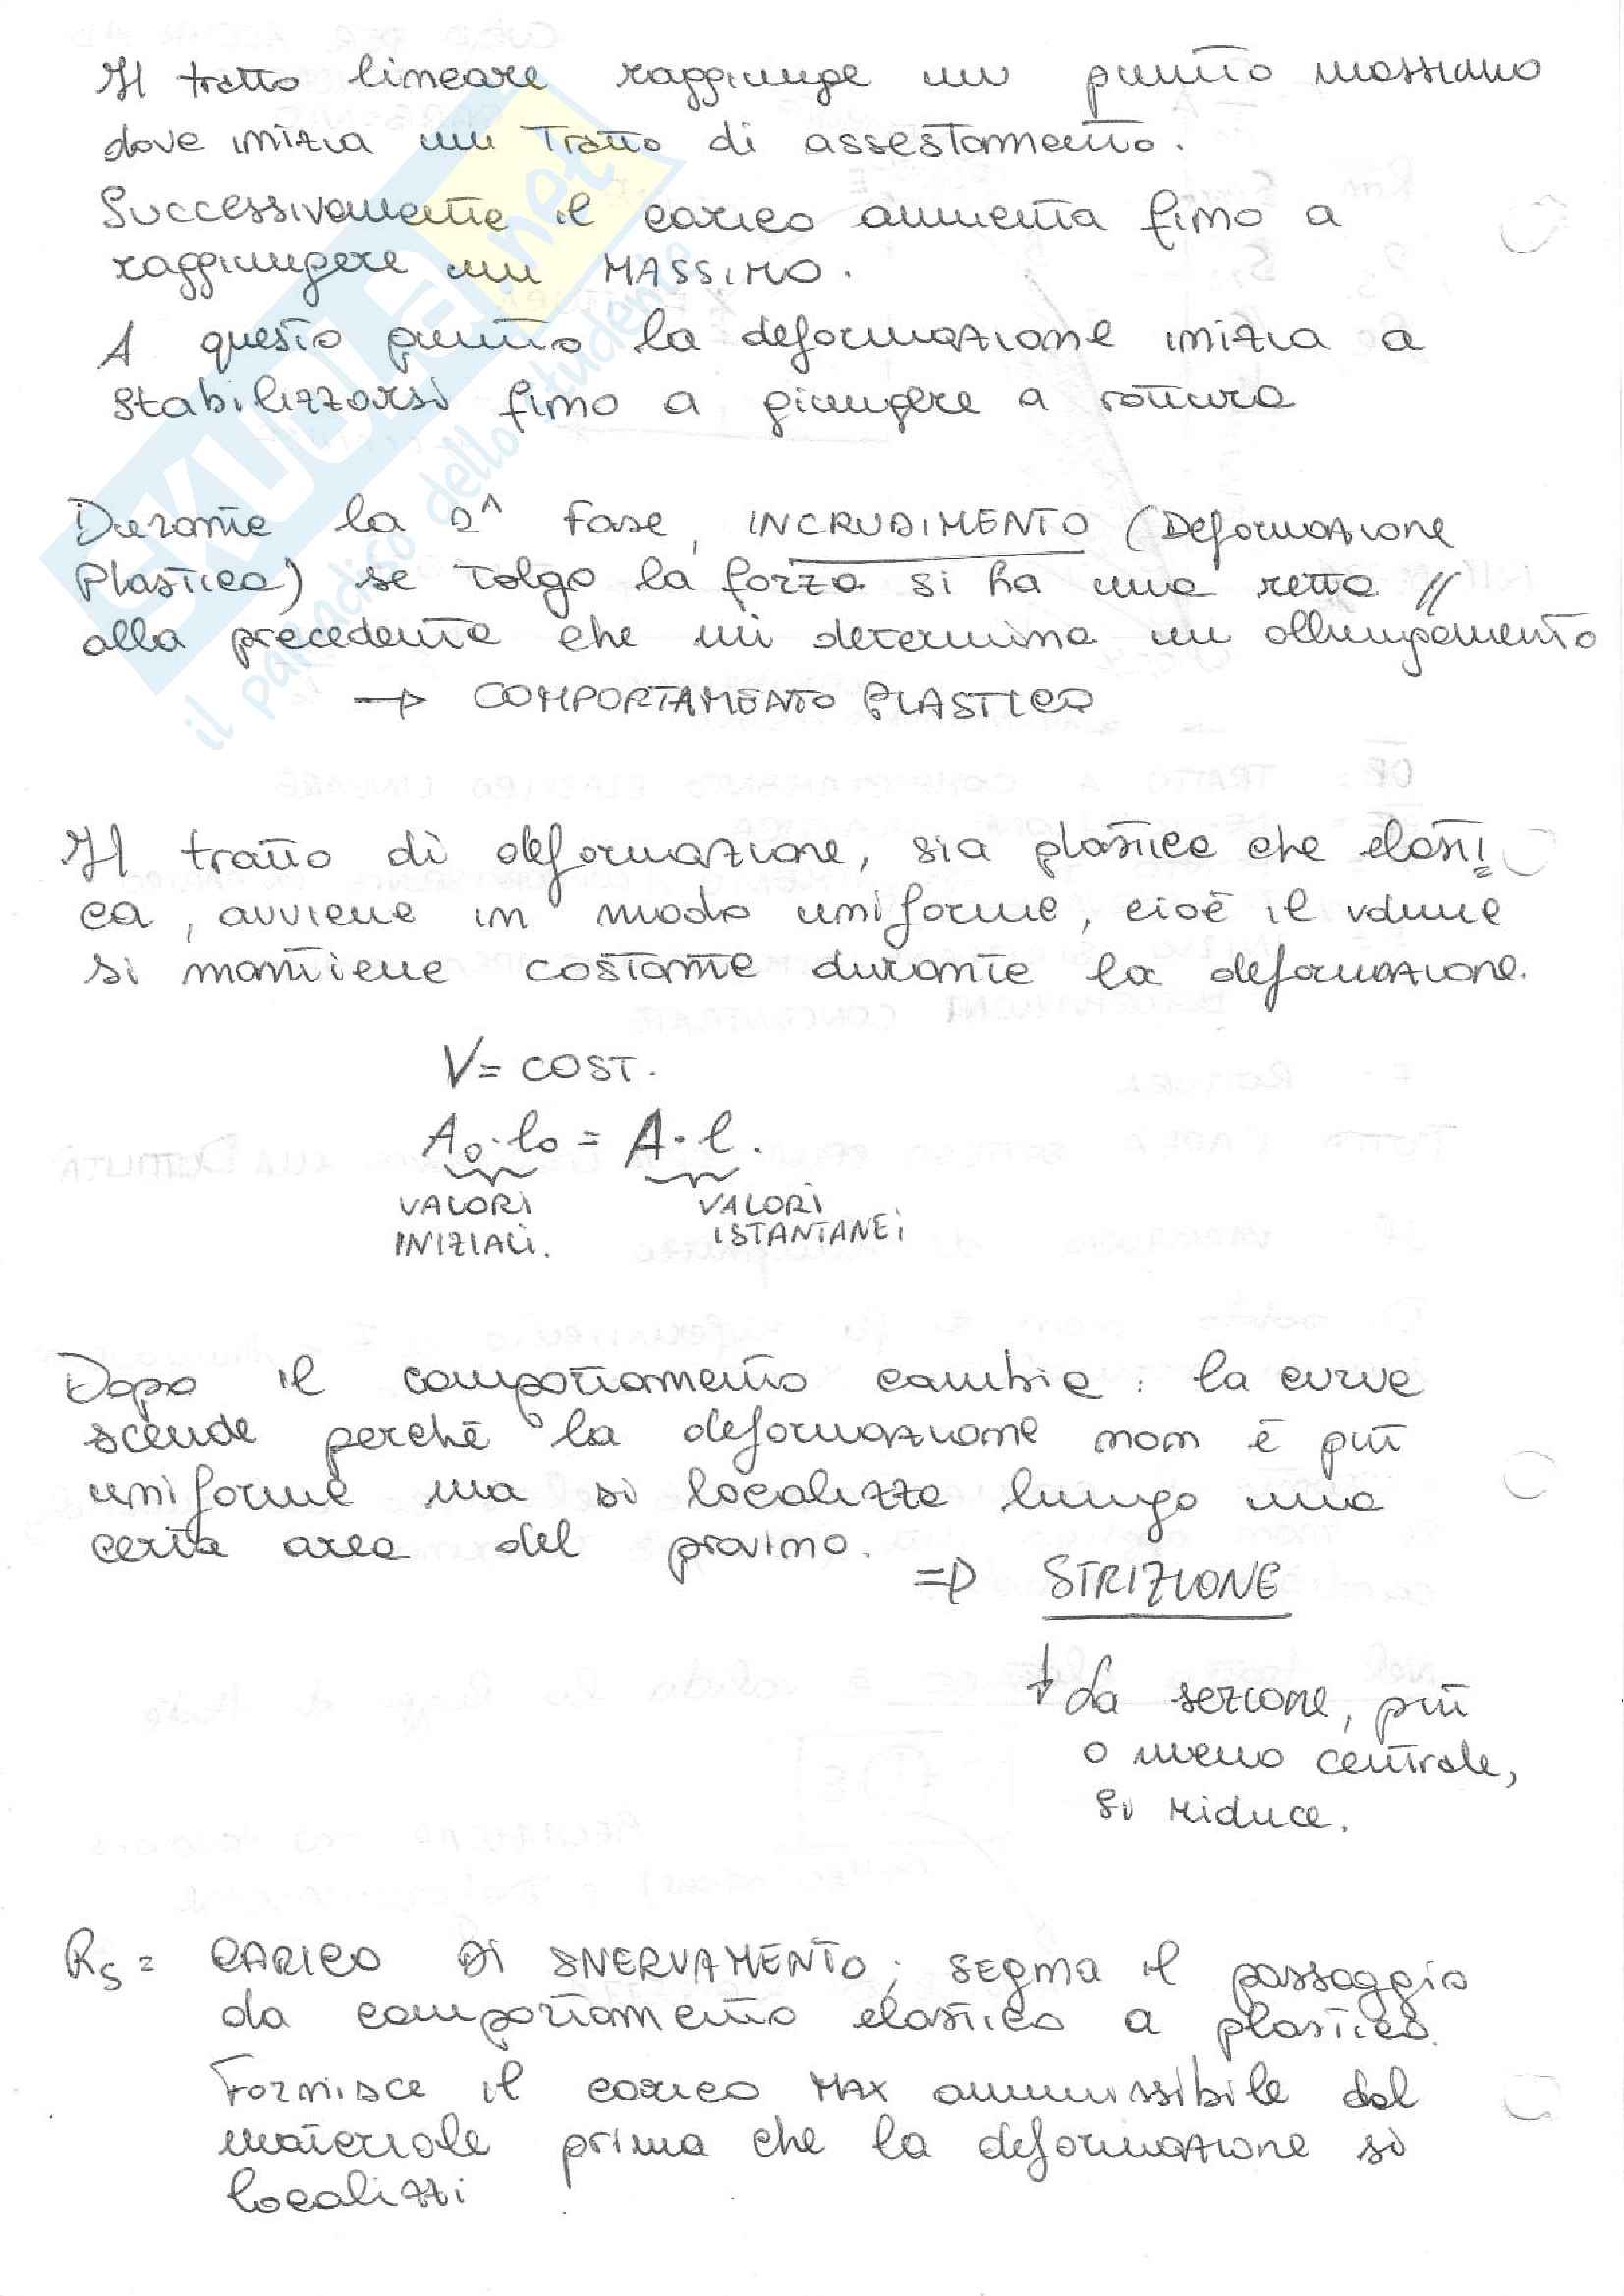 Il tratto lineare raggiunge un punto massimo
dove inizia un Tratto di assestamento.
Successivamente il carico aumenta fino a
raggiungere un MASSIMO.
A questo punto la deformazione inizia a
stabilizzarsi fino a giungere a rottura
Durante la 2^ fase, INCRUDIMENTO (Deformazione
Plastica) se tolgo la forza si ha una retta //
alla precedente che mi determina un allungamento
→ COMPORTAMENTO PLASTICO
Il tratto di deformazione, sia plastica che elasti=
ca, avviene in modo uniforme, cioè il volume
si mantiene costante durante la deformazione.
V = COST.
A₀·l₀ = A·l.
VALORI VALORI
INIZIALI. ISTANTANEI
Dopo il comportamento cambia: la curva
scende perchè la deformazione non è più
uniforme ma si localizza lungo una
certa area del provino.
=> STRIZIONE
↓ La sezione, più
o meno centrale,
si riduce.
Rs = CARICO DI SNERVAMENTO; segna il passaggio
da comportamento elastico a plastico.
Fornisce il carico MAX ammissibile dal
materiale prima che la deformazione si
localizzi
SKUOLA.net
il paradiso dello studente